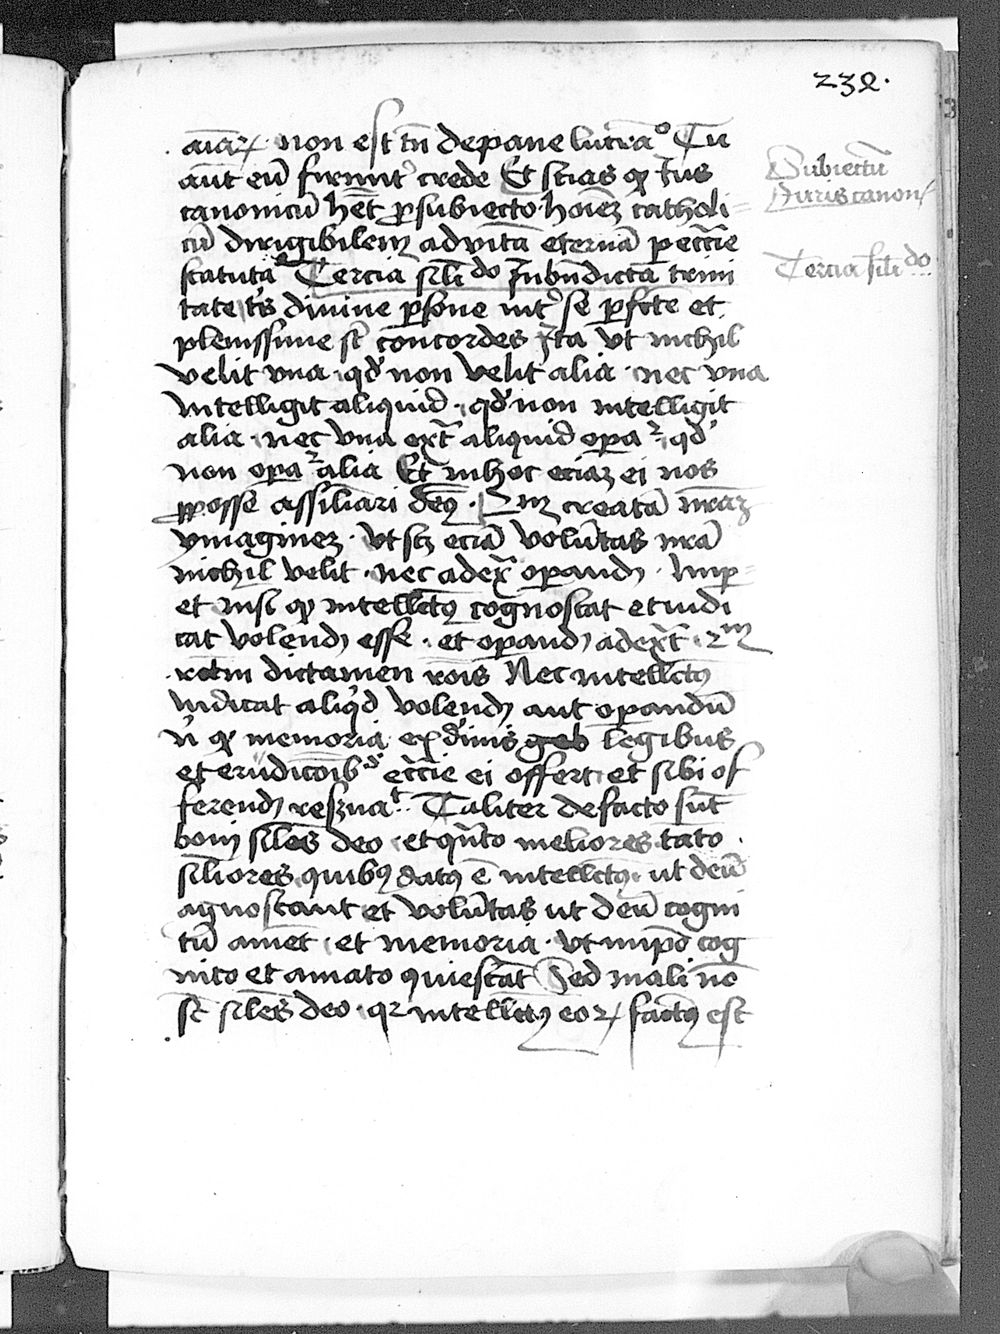 232.
aīar̄ · non est tn̄ de pane lucrāo Tu
aūt eū firmit᷑ crede Et scias ꝙ Ius
canonicū hēt ꝓ subiecto hoīeꝫ catholi=
cū dirigibilem ad vitā eternā ꝑ ecc̄ie
statuta Tercia sil̄ido In bn̄dicta trini
tate tr̄s diuine ꝑsone int᷑ se ꝑfc̄te et
plenissime st̄ concordes Ita vt nichil
velit vna · qd̓ non velit alia · nec vna
intelligit aliquid · qd̓ non intelligit
alia · nec vna ext̄ aliquid oꝑaᷣ · qd̓
non oꝑaᷣ alia Et in hoc eciaꝫ ei nos
posse assil̄iari deꝰ · creatā nr̄aꝫ
ymagineꝫ · vt scꝫ eciā volūtas nr̄a
nichil velit · nec ad ex̄ oꝑandū ·
et nisi ꝙ intell̄ctꝰ cognoscat et iudi
cat volendū esse · et oꝑandū ad ext̄ · 2m
rectm dictamen rōis Nec intell̄ctꝰ
iudicat aliqͥd volendū aut oꝑandū
n̓ ꝙ memoria ex diuīs legibus
et erudicōibꝰ ecc̄ie ei offert · et sibi of
ferendū reseruat. Taliter de facto sūt
boni sil̄es deo · et qn̄to meliores tāto
sil̄iores quibꝰ datꝰ ē intell̄ctꝰ · ut deū
agnoscant et volūtas ut deū cogni
tū amet · et memoria · vt in ip̄o cog
nito et amato quiescat Sed mali nō
st̄ sil̄es deo · qr intell̄ctꝰ eoꝝ factꝰ est
Subiectū
Iuris canonꝭ
Tercia sil̄ido